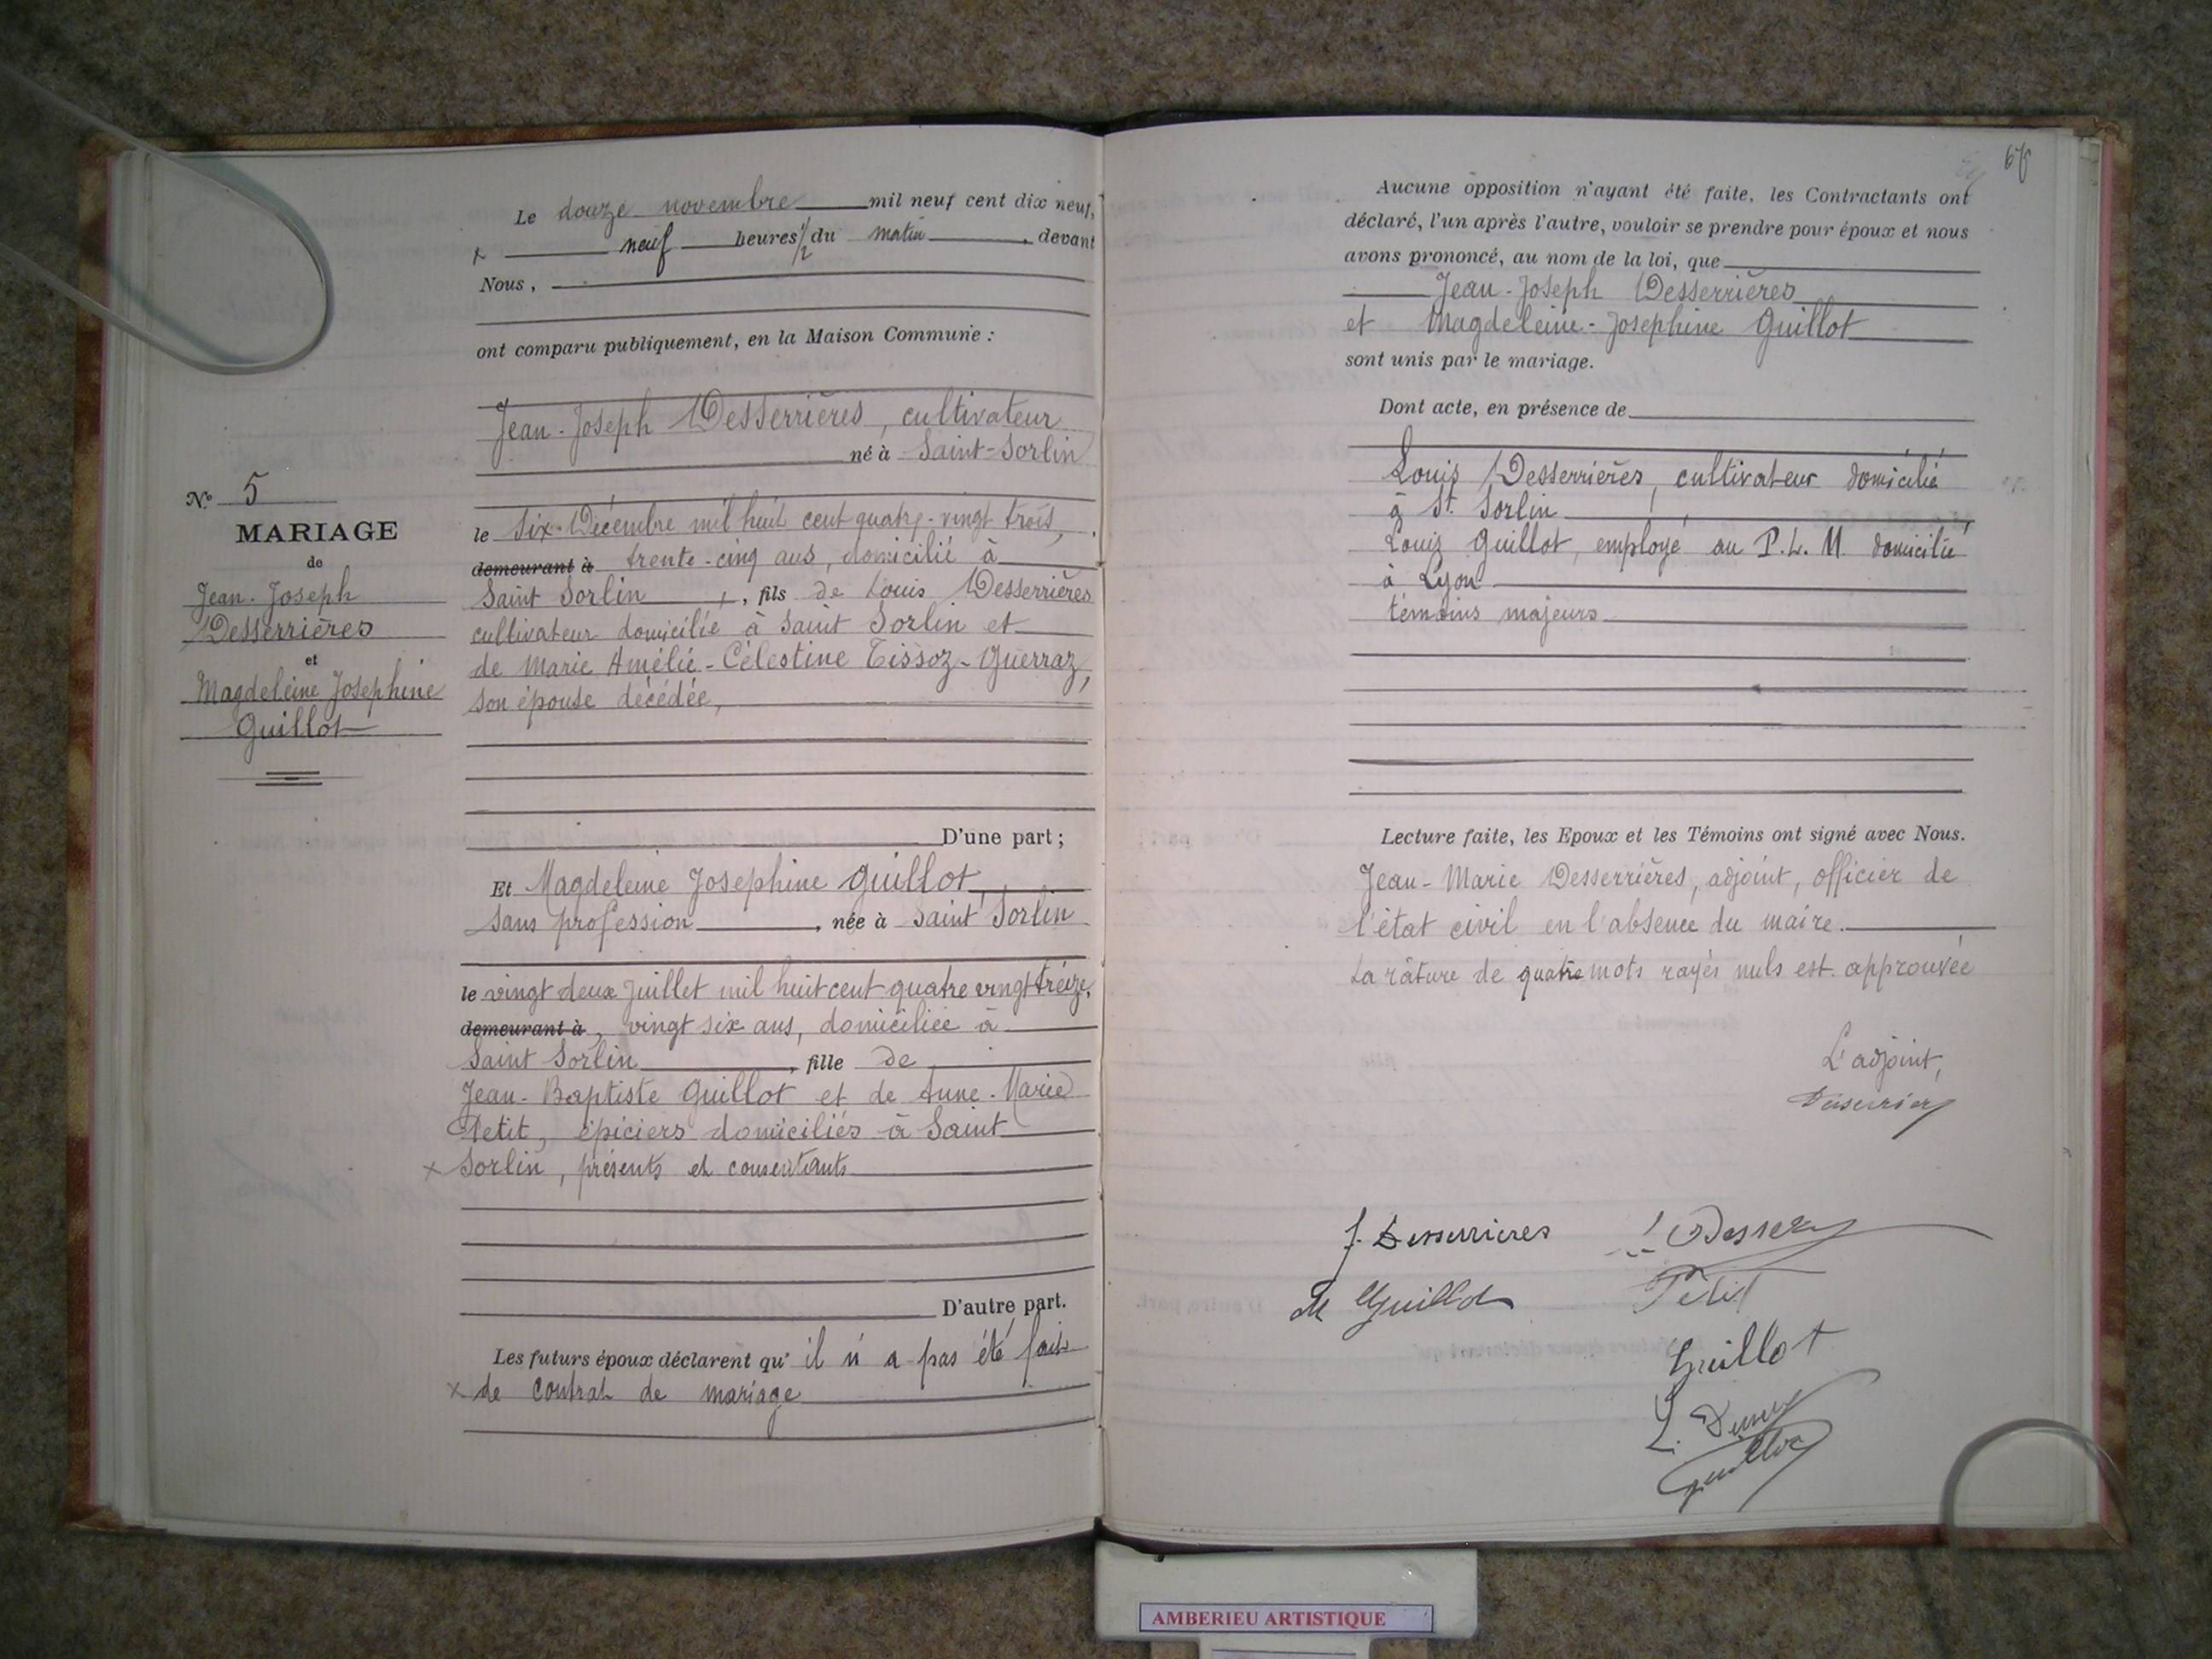 N° 5
MARIAGE
de
Jean-Joseph
Desserrières
et
Magdeleine Josephine
Guillot
Le douze novembre mil neuf cent dix neuf,
x neuf heures 1/2 du matin, devant
Nous,
ont comparu publiquement, en la Maison Commune :
Jean-Joseph Desserrières, cultivateur
né à Saint-Sorlin
le six Décembre mil huit cent quatre-vingt trois,
demeurant à trente-cinq ans, domicilié à
Saint Sorlin, fils de Louis Desserrières
cultivateur domicilié à Saint Sorlin et
de Marie Amélie-Célestine Tissoz-Guerraz,
son épouse décédée,
D'une part ;
Et Magdeleine Josephine Guillot,
sans profession, née à Saint Sorlin
le vingt deux Juillet mil huit cent quatre vingt treize,
demeurant à, vingt six ans, domiciliée à
Saint Sorlin, fille de
Jean-Baptiste Guillot et de Anne-Marie
Petit, épiciers domiciliés à Saint
x Sorlin, présents et consentants
D'autre part.
Les futurs époux déclarent qu'il n'a pas été fait
x de contrat de mariage
67
Aucune opposition n'ayant été faite, les Contractants ont
déclaré, l'un après l'autre, vouloir se prendre pour époux et nous
avons prononcé, au nom de la loi, que
Jean-Joseph Desserrières
et Magdeleine-Josephine Guillot
sont unis par le mariage.
Dont acte, en présence de
Louis Desserrières, cultivateur domicilié
à St. Sorlin
Louis Guillot, employé au P.L.M domicilié
à Lyon
témoins majeurs
Lecture faite, les Epoux et les Témoins ont signé avec Nous.
Jean-Marie Desserrières, adjoint, officier de
l'état civil en l'absence du maire.
La râture de quatre mots rayés nuls est approuvée
L'adjoint,
J. Desserrieres
M Guillot
Petit
Guillot
Guillot
AMBERIEU ARTISTIQUE